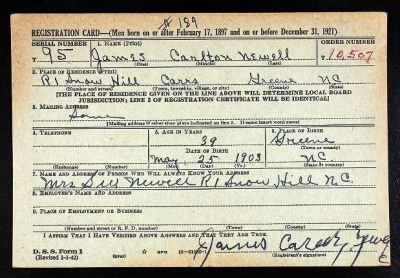 # 189
REGISTRATION CARD—(Men born on or after February 17, 1897 and on or before December 31, 1921)
SERIAL NUMBER 1. NAME (Print) ORDER NUMBER
T 95 James Carlton Newell T 10,507
(First) (Middle) (Last)
2. PLACE OF RESIDENCE (Print)
R1 Snow Hill Carrs Greene NC
(Number and street) (Town, township, village, or city) (County) (State)
[THE PLACE OF RESIDENCE GIVEN ON THE LINE ABOVE WILL DETERMINE LOCAL BOARD
JURISDICTION; LINE 2 OF REGISTRATION CERTIFICATE WILL BE IDENTICAL]
3. MAILING ADDRESS
Same
[Mailing address if other than place indicated on line 2. If same insert word same]
4. TELEPHONE 5. AGE IN YEARS 6. PLACE OF BIRTH
39 Greene
DATE OF BIRTH (Town or county)
May 25 1903 NC
(Exchange) (Number) (Mo.) (Day) (Yr.) (State or country)
7. NAME AND ADDRESS OF PERSON WHO WILL ALWAYS KNOW YOUR ADDRESS
Mrs Newell R1 Snow Hill N.C.
8. EMPLOYER'S NAME AND ADDRESS
9. PLACE OF EMPLOYMENT OR BUSINESS
(Number and street or R. F. D. number) (Town) (County) (State)
I AFFIRM THAT I HAVE VERIFIED ABOVE ANSWERS AND THAT THEY ARE TRUE.
D. S. S. Form 1
(Revised 1-1-42) (over)